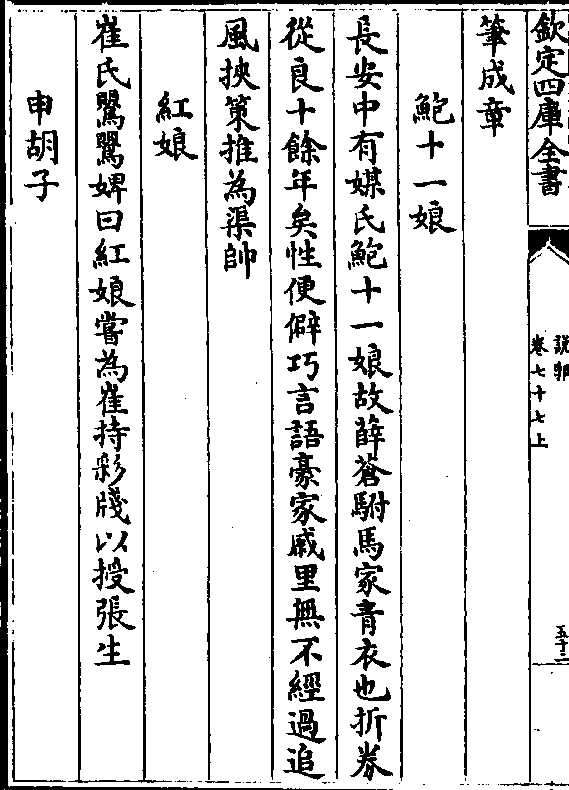 欽定四庫全書
說郛
卷七十七上
五十三
筆成章
鮑十一娘
長安中有媒氏鮑十一娘故薛蒼駙馬家青衣也折券
從良十餘年矣性便僻巧言語豪家戚里無不經過追
風挾策推為渠帥
紅娘
崔氏鶯鶯婢曰紅娘嘗為崔持彩牋以授張生
申胡子